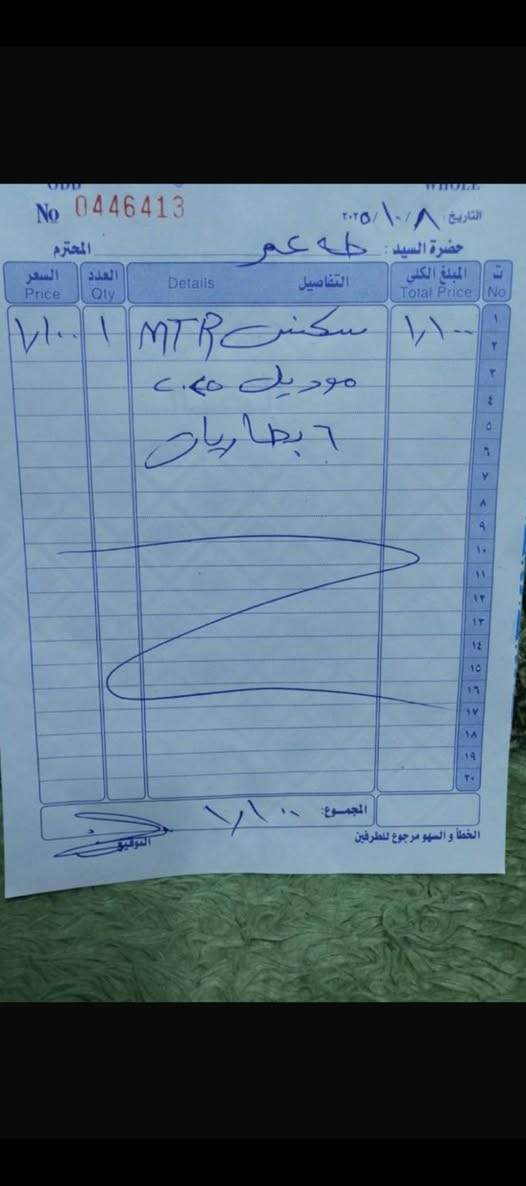 WHOLE
No 0446413
التاريخ: ٢٠٢٥/١٠/٨
حضرة السيد: طه عمر المحترم
ت المبلغ الكلي التفاصيل Details العدد السعر
No Total Price Qty Price
١ ١,١٠٠ سكنس MTR ١ ١,١٠٠
٢
٣ موديل ٢٠٢٥
٤
٥ ٦ بطاريات
٦
٧
٨
٩
١٠
١١
١٢
١٣
١٤
١٥
١٦
١٧
١٨
١٩
٢٠
المجموع: ١,١٠٠
الخطأ و السهو مرجوع للطرفين التوقيع